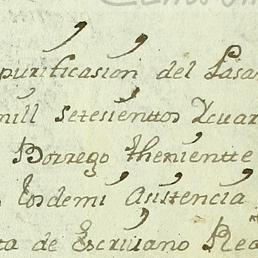 purificasion del Pasa
mill setesienttos Ycuar
Borrego thenientte
Los demi Asistencia
ta de Escriuano Rea